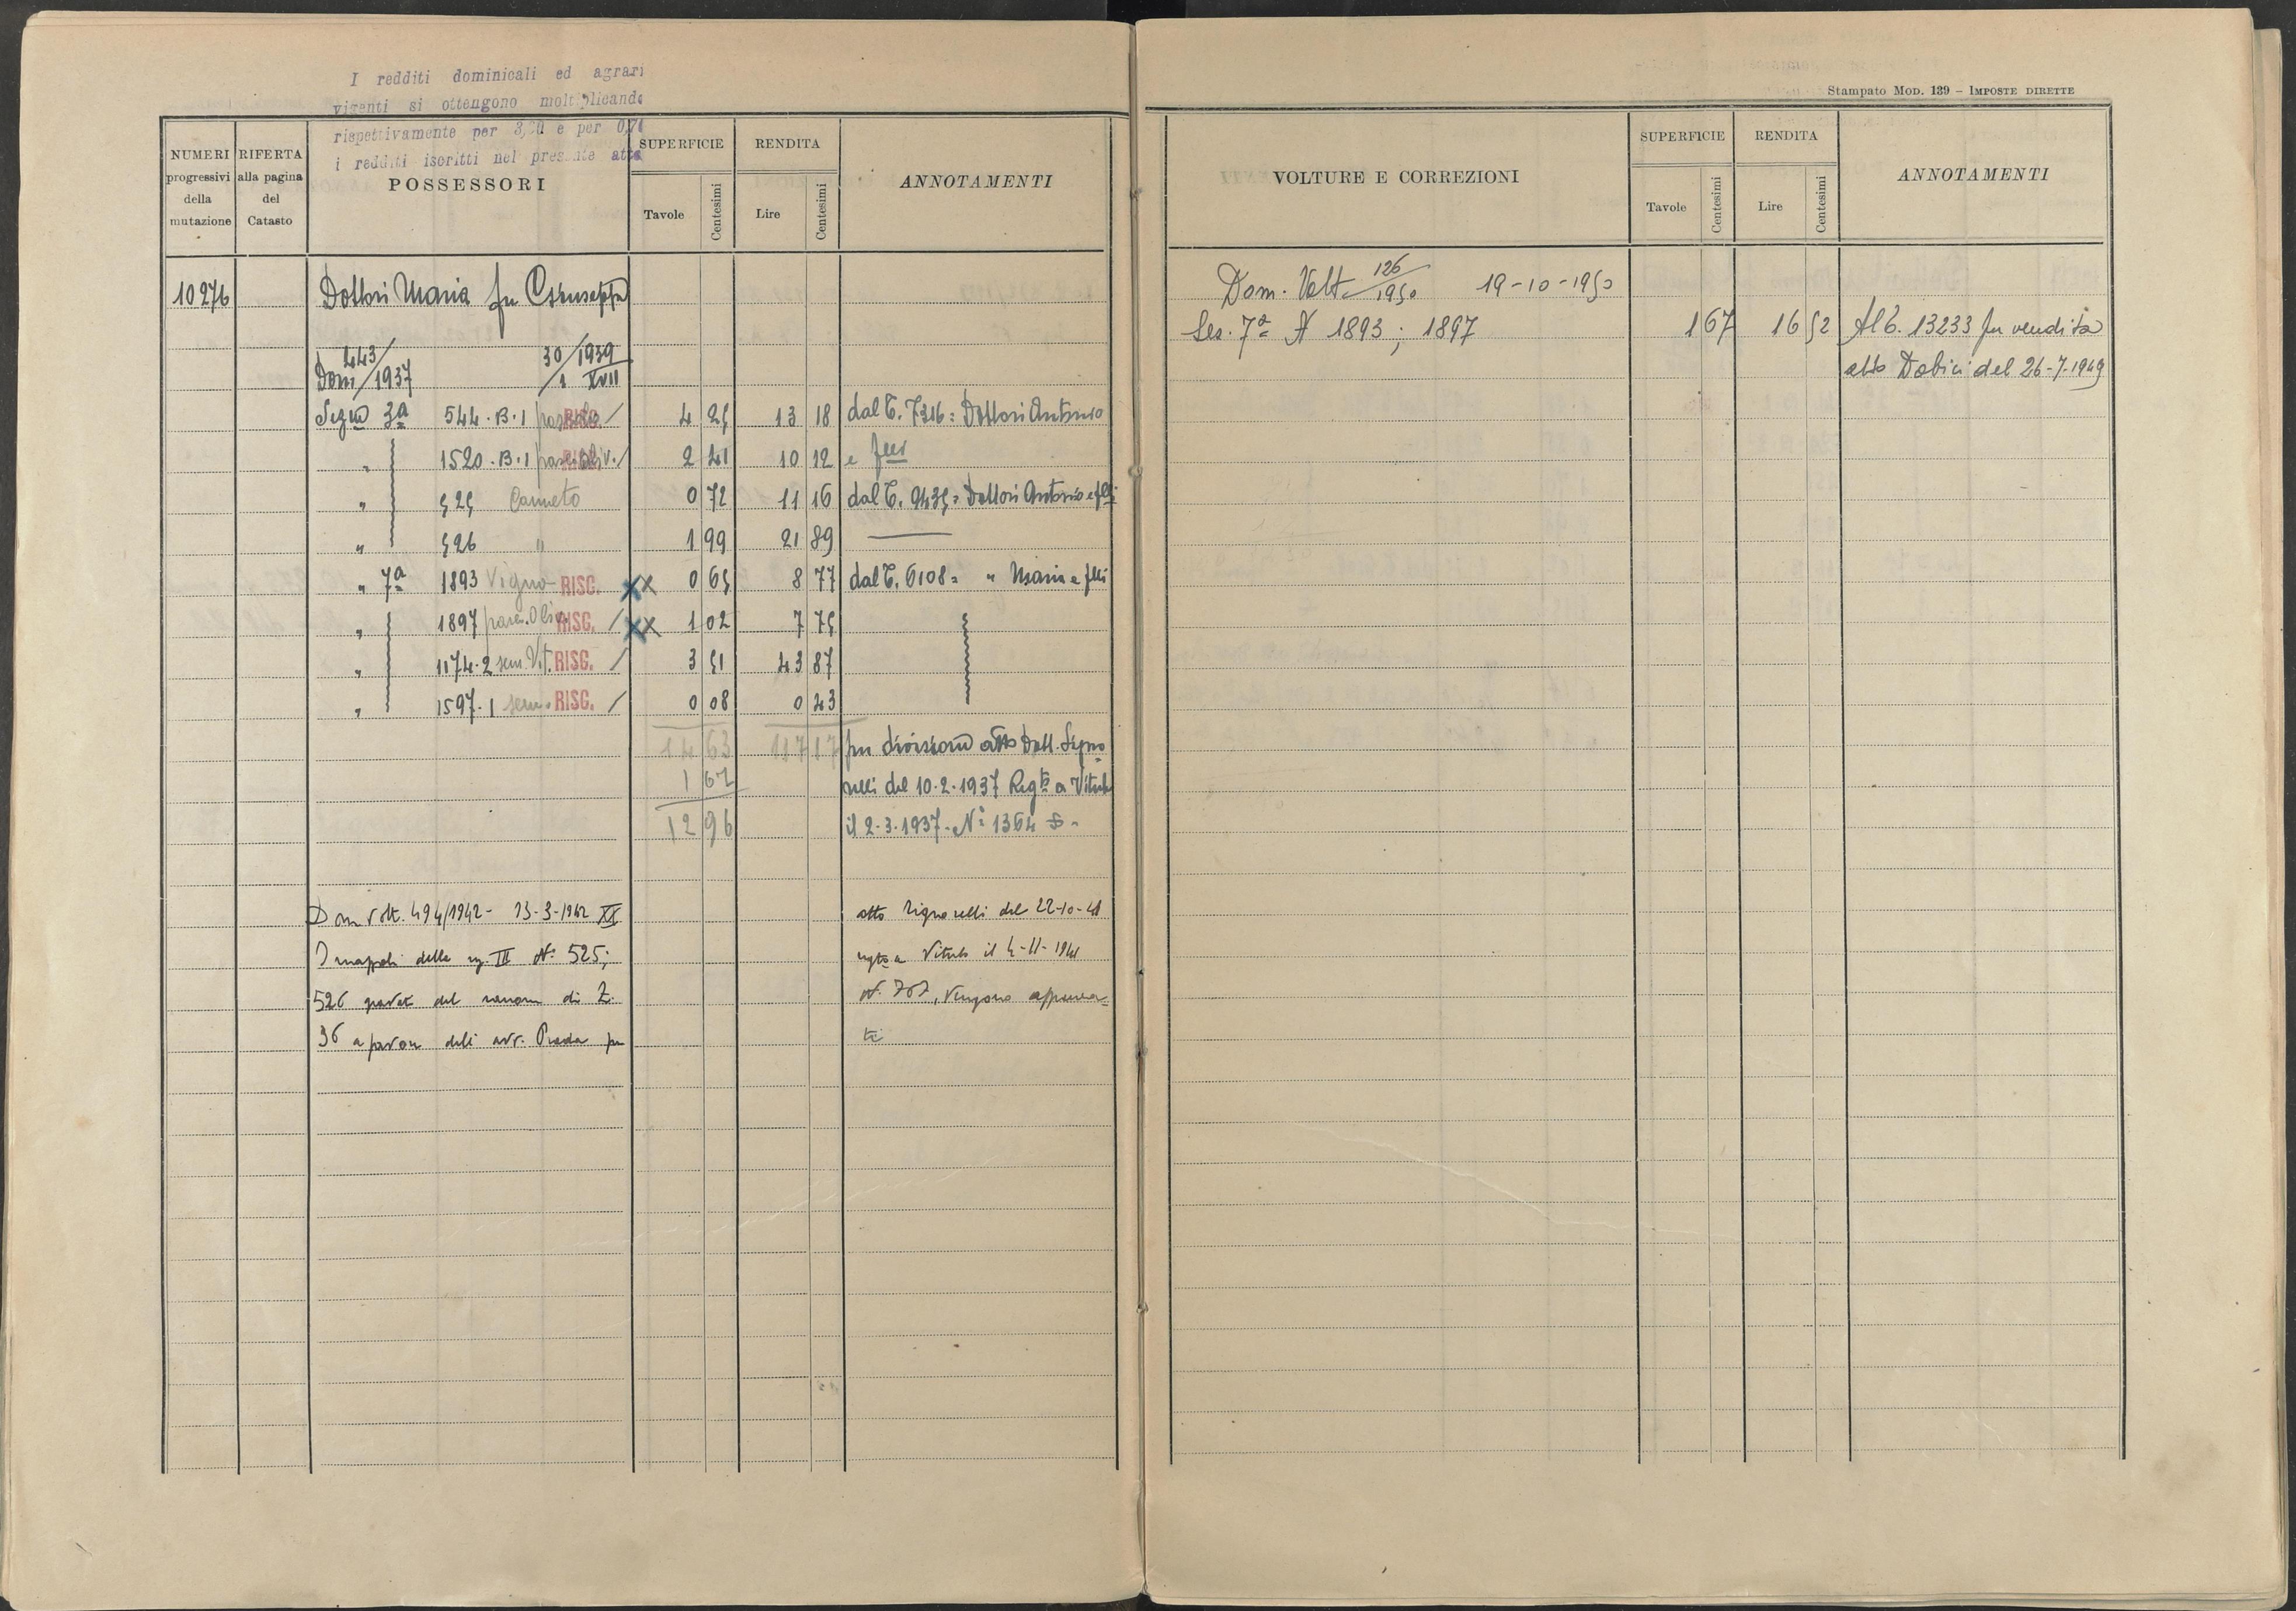 I redditi dominicali ed agrari
vigenti si ottengono moltiplicando
rispettivamente per 3,20 e per 0,70
i redditi iscritti nel presente atto
NUMERI progressivi della mutazione
RIFERTA alla pagina del Catasto
POSSESSORI
SUPERFICIE
Tavole Centesimi
RENDITA
Lire Centesimi
ANNOTAMENTI
10276 Dottori Maria fu Giuseppe
Dom 443/1937 30/1 1939 XVII
Segna 3a 544.B.1 pascolo RISC. / 4 25 13 18 dal C. 7316 = Dottori Antonio
" 1520.B.1 pasc. oliv. / 2 41 10 12 e flli
" 525 Canneto 0 72 11 16 dal C. 9435 = Dottori Antonio e flli
" 526 " 1 99 21 89
" 7a 1893 Vigna RISC. XX 0 65 8 77 dal C. 6108 = " Maria e flli
" 1897 pasc. Oliv. RISC. / XX 1 02 7 75
" 1174.2 sem. Vit. RISC. / 3 51 43 87
" 1597.1 sem. RISC. / 0 08 0 43
14 63 117 17 per divisione atto Dott. Signo
1 67 relli del 10.2.1937 Regto a Viterbo
12 96 il 2.3.1937 - No 1364
Dom Volt. 494/1942 - 13-3-1942 XX atto Signorelli del 22-10-41
I mappali della sez. III No 525; regto a Viterbo il 4-11-1941
526 del canone di £. No 707, vengono affranca
36 a favore avv. Prada per ti
Stampato MOD. 139 - IMPOSTE DIRETTE
VOLTURE E CORREZIONI
SUPERFICIE
Tavole Centesimi
RENDITA
Lire Centesimi
ANNOTAMENTI
Dom. Volt. 126/1950 19-10-1950
Sez. 7a N 1893; 1897 1 67 16 52 Al C. 13233 per vendita
atto Dobici del 26-7-1949